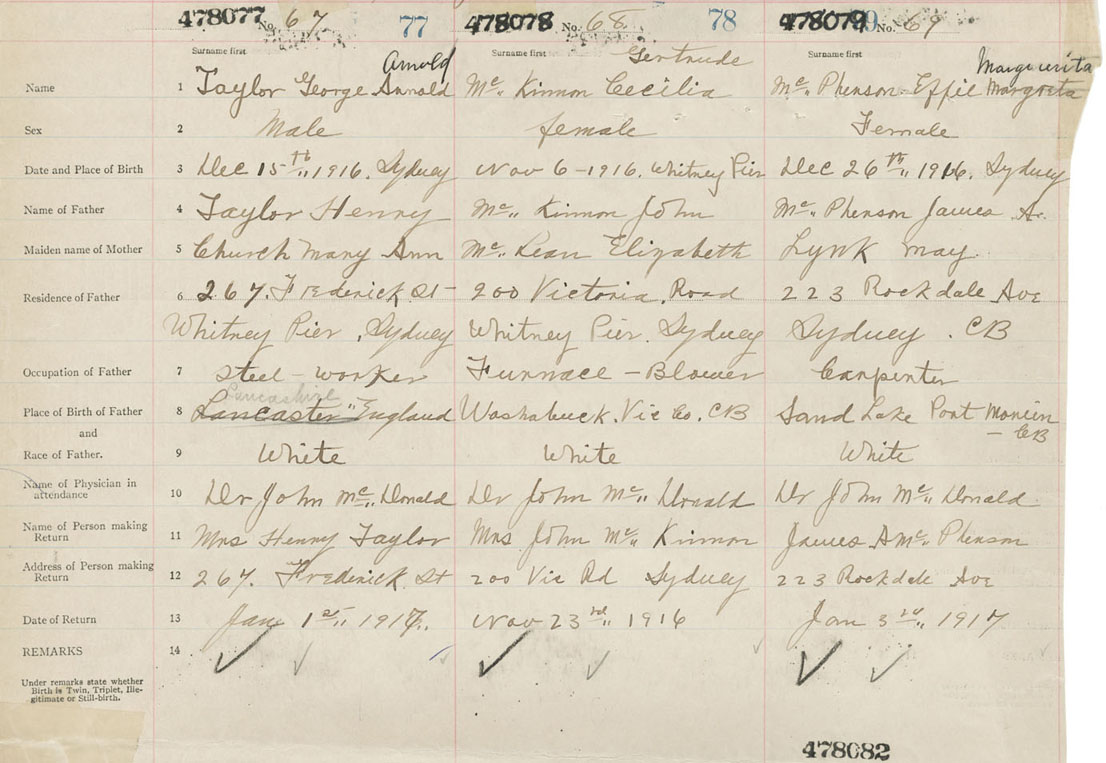 478077 No. 67 77 478078 No. 68 78 478079 No. 69
Surname first Surname first Surname first
Arnold Gertrude Marguerita
Name 1 Taylor George Arnold Mc. Kinnon Cecilia Mc. Phenson Effie Margreta
Sex 2 Male female Female
Date and Place of Birth 3 Dec 15th,, 1916. Sydney Nov 6 - 1916. Whitney Pier Dec 26th,, 1916. Sydney
Name of Father 4 Taylor Henry Mc,, Kinnon John Mc,, Phenson James A.
Maiden name of Mother 5 Church Mary Ann Mc,, Lean Elizabeth Lynk May
Residence of Father 6 267. Frederick St 200 Victoria Road 223 Rockdale Ave
Whitney Pier, Sydney Whitney Pier. Sydney Sydney. CB
Occupation of Father 7 Steel - worker Furnace - Blower Carpenter
Lancashire
Place of Birth of Father 8 Lancaster " England Washabuck. Vic Co. CB Sand Lake Port Morien
and - CB
Race of Father. 9 White White White
Name of Physician in attendance 10 Dr John Mc,, Donald Dr John Mc,, Donald Dr John Mc,, Donald
Name of Person making Return 11 Mrs Henry Taylor Mrs John Mc,, Kinnon James A Mc,, Phenson
Address of Person making Return 12 267. Frederick St 200 Vic Rd Sydney 223 Rockdale Ave
Date of Return 13 Jan 1st,, 1917. Nov 23rd,, 1916 Jan 3rd,, 1917
REMARKS 14
Under remarks state whether
Birth is Twin, Triplet, Ille-
gitimate or Still-birth.
478082